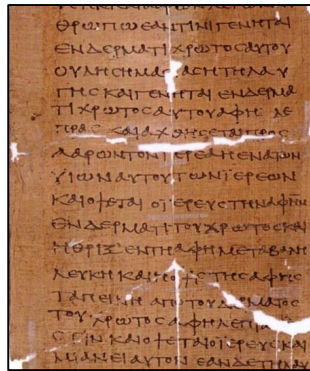 ΘΡΩΠΩΕΑΝΤΙΝΙΓΕΝΗΤΑΙ
ΕΝΔΕΡΜΑΤΙΧΡΩΤΟΣΑΥΤΟΥ
ΟΥΛΗΣΗΜΑΣΙΑΣΤΗΛΑΥ
ΓΗΣΚΑΙΓΕΝΗΤΑΙΕΝΔΕΡΜΑ
ΤΙΧΡΩΤΟΣΑΥΤΟΥΑΦΗΛΕ
ΠΡΑΣΚΑΙΑΧΘΗΣΕΤΑΙΠΡΟΣ
ΑΑΡΩΝΤΟΝΙΕΡΕΑΗΕΝΑΤΩΝ
ΥΙΩΝΑΥΤΟΥΤΩΝΙΕΡΕΩΝ
ΚΑΙΟΨΕΤΑΙΟΙΕΡΕΥΣΤΗΝΑΦΗΝ
ΕΝΔΕΡΜΑΤΙΤΟΥΧΡΩΤΟΣΚΑΙ
ΗΘΡΙΞΕΝΤΗΑΦΗΜΕΤΑΒΑΛΗ
ΛΕΥΚΗΚΑΙΗΟΨΙΣΤΗΣΑΦΗΣ
ΤΑΠΕΙΝΗΑΠΟΤΟΥΔΕΡΜΑΤΟΣ
ΤΟΥΧΡΩΤΟΣΑΦΗΛΕΠΡΑΣ
ΚΑΙΟΨΕΤΑΙΟΙΕΡΕΥΣΚΑΙ
ΜΙΑΝΕΙΑΥΤΟΝΕΑΝΔΕΤΗΛΑΥ